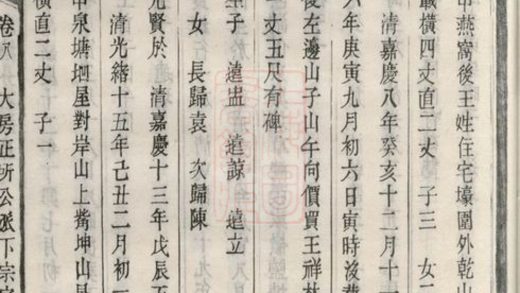 燕窩後王姓住宅壕圍外乾山
橫四丈直二丈 子三 女
清嘉慶八年癸亥十二月十一
六年庚寅九月初六日寅時没葬
後左邊山子山午向價買王祥林
一丈五尺有碑
生子 遠盅 遠諒 遠立
女 長歸袁 次歸陳
元賢於 清嘉慶十三年戊辰
清光緒十五年己丑二月初一
泉塘堋屋對岸山上觜坤山艮
橫直二丈 子一
卷八 大房正所公派下宗